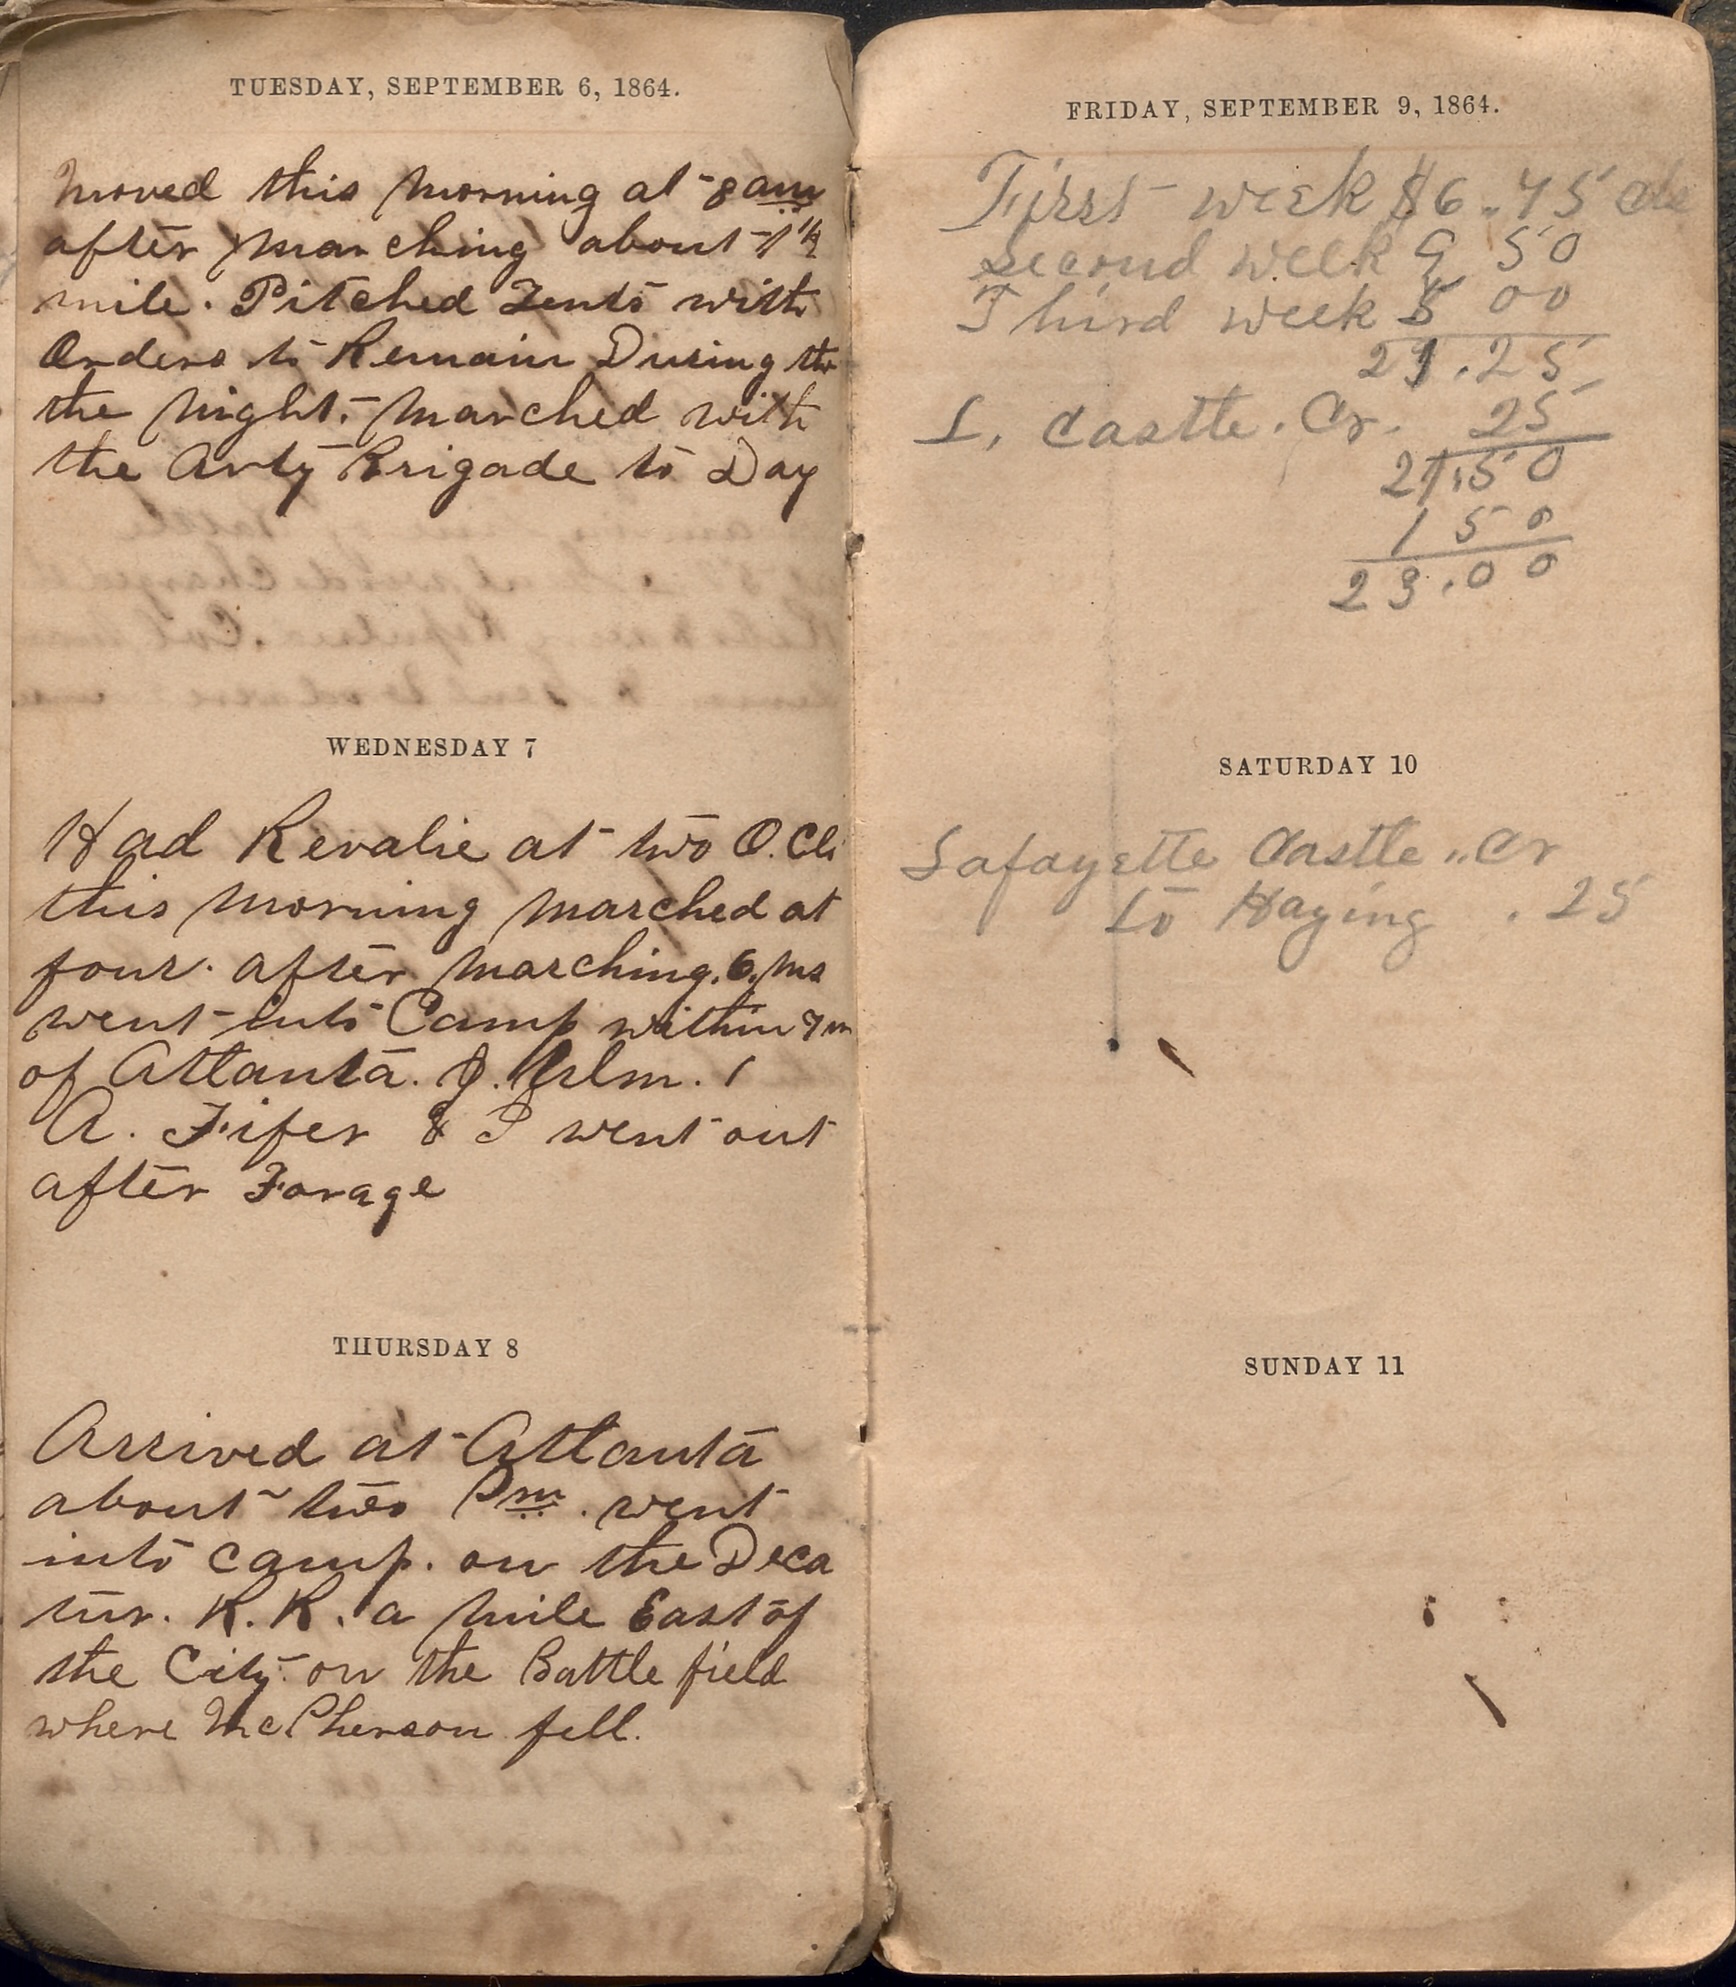 TUESDAY, SEPTEMBER 6, 1864.
Moved this morning at 8 am
after marching about 1 1/2
mile. Pitched Tents with
Orders to Remain During the
the night. marched with
the Arty Brigade to Day
WEDNESDAY 7
Had Revalie at two O.Cl
this morning marched at
four. after marching. 6. ms
went into Camp within 7 m
of Atlanta. J.
A. Fifer & I went out
after Forage
THURSDAY 8
Arrived at Atlanta
about two Pm. went
into camp. on the Deca
tur. R. R. a mile East of
the City on the Battle field
where McPherson fell.
FRIDAY, SEPTEMBER 9, 1864.
First week $6.75 cts
second week 9 50
Third week 5 00
21.25
L. Castle. Cr. 25
21.50
1 50
23.00
SATURDAY 10
Lafayette Castle .. Cr
to Haying .25
SUNDAY 11